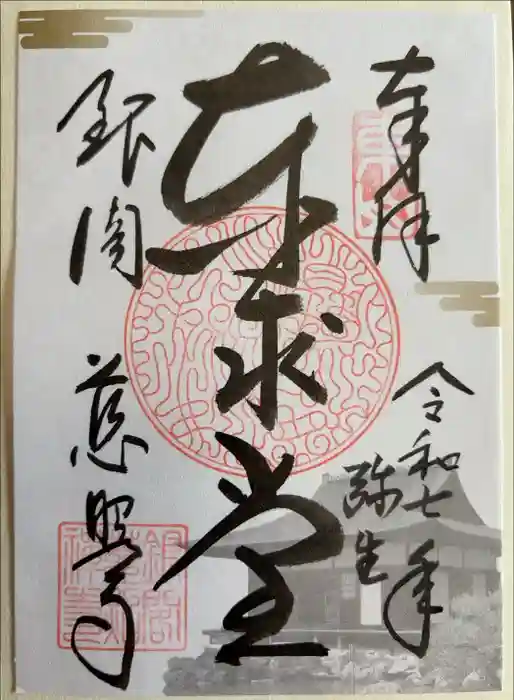 奉拝
令和七年
弥生
東求堂
銀閣
慈照寺